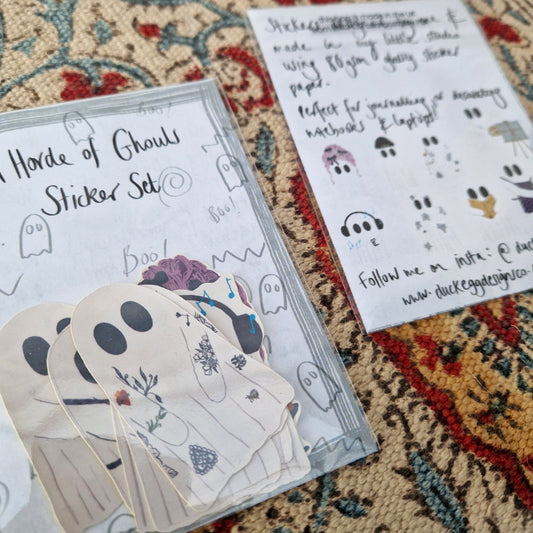 Horde of Ghouls
Sticker Set
Boo!
Boo!
Boo!
Boo!
made in my little studio
using 80gsm glossy sticker
paper.
Perfect for journalling or decorating
notebooks & laptops!
Follow me on insta: @duck
www.duckeggdesigns.co